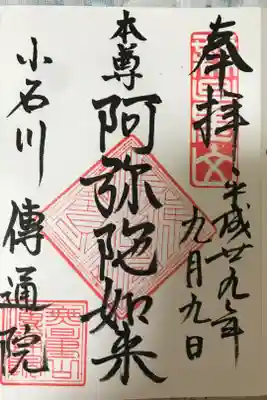 奉拝
平成廿九年
九月九日
本尊
阿弥陀如来
小石川 傳通院